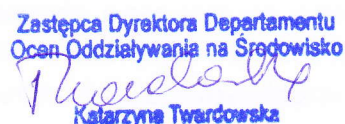 Zastępca Dyrektora Departamentu
Ocen Oddziaływania na Środowisko
Twardowska
Katarzyna Twardowska